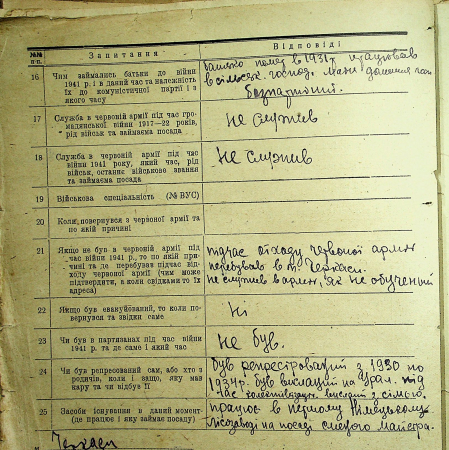 №№ п-п. Запитання Відповіді
16 Чим займались батьки до війни
1941 р. і в даний час та належність
їх до комуністичної партії і з
якого часу
батько помер в 1931 р. працював
в сільськ. господ. мати домашня
безпартійний.
17 Служба в червоній армії під час гро-
мадянської війни 1917—22 років,
рід військ та займаєма посада
Не служив
18 Служба в червоній армії під час
війни 1941 року, який час, рід
військ, останнє військове звання
та займаєма посада
Не служив
19 Військова спеціяльність (№ ВУС)
20 Коли повернувся з червоної армії та
по якій причині
21 Якщо не був в червоній армії під
час війни 1941 р. то по якій при-
чині та де перебував підчас від-
ходу червоної армії (чим може
підтвердити, а коли свідками то їх
адреса)
підчас відходу червоної армії
перебував в м. Черкаси.
не служив в армії, як не обучений
22 Якщо був евакуйований, то коли по-
вернувся та звідки саме
Ні
23 Чи був в партизанах під час війни
1941 р. та де саме і який час
Не був.
24 Чи був репресирований сам, або хто з
родичів, коли і защо, яку мав
кару та чи відбув її
був репресірований з 1930 по
1934 р. був висланий на Урал. під
час колективізації. висланий з сім'єю.
25 Засоби існування в даний момент
(де працює і яку займає посаду)
працює в першому німецькому
лісозаводі на посаді майстра.